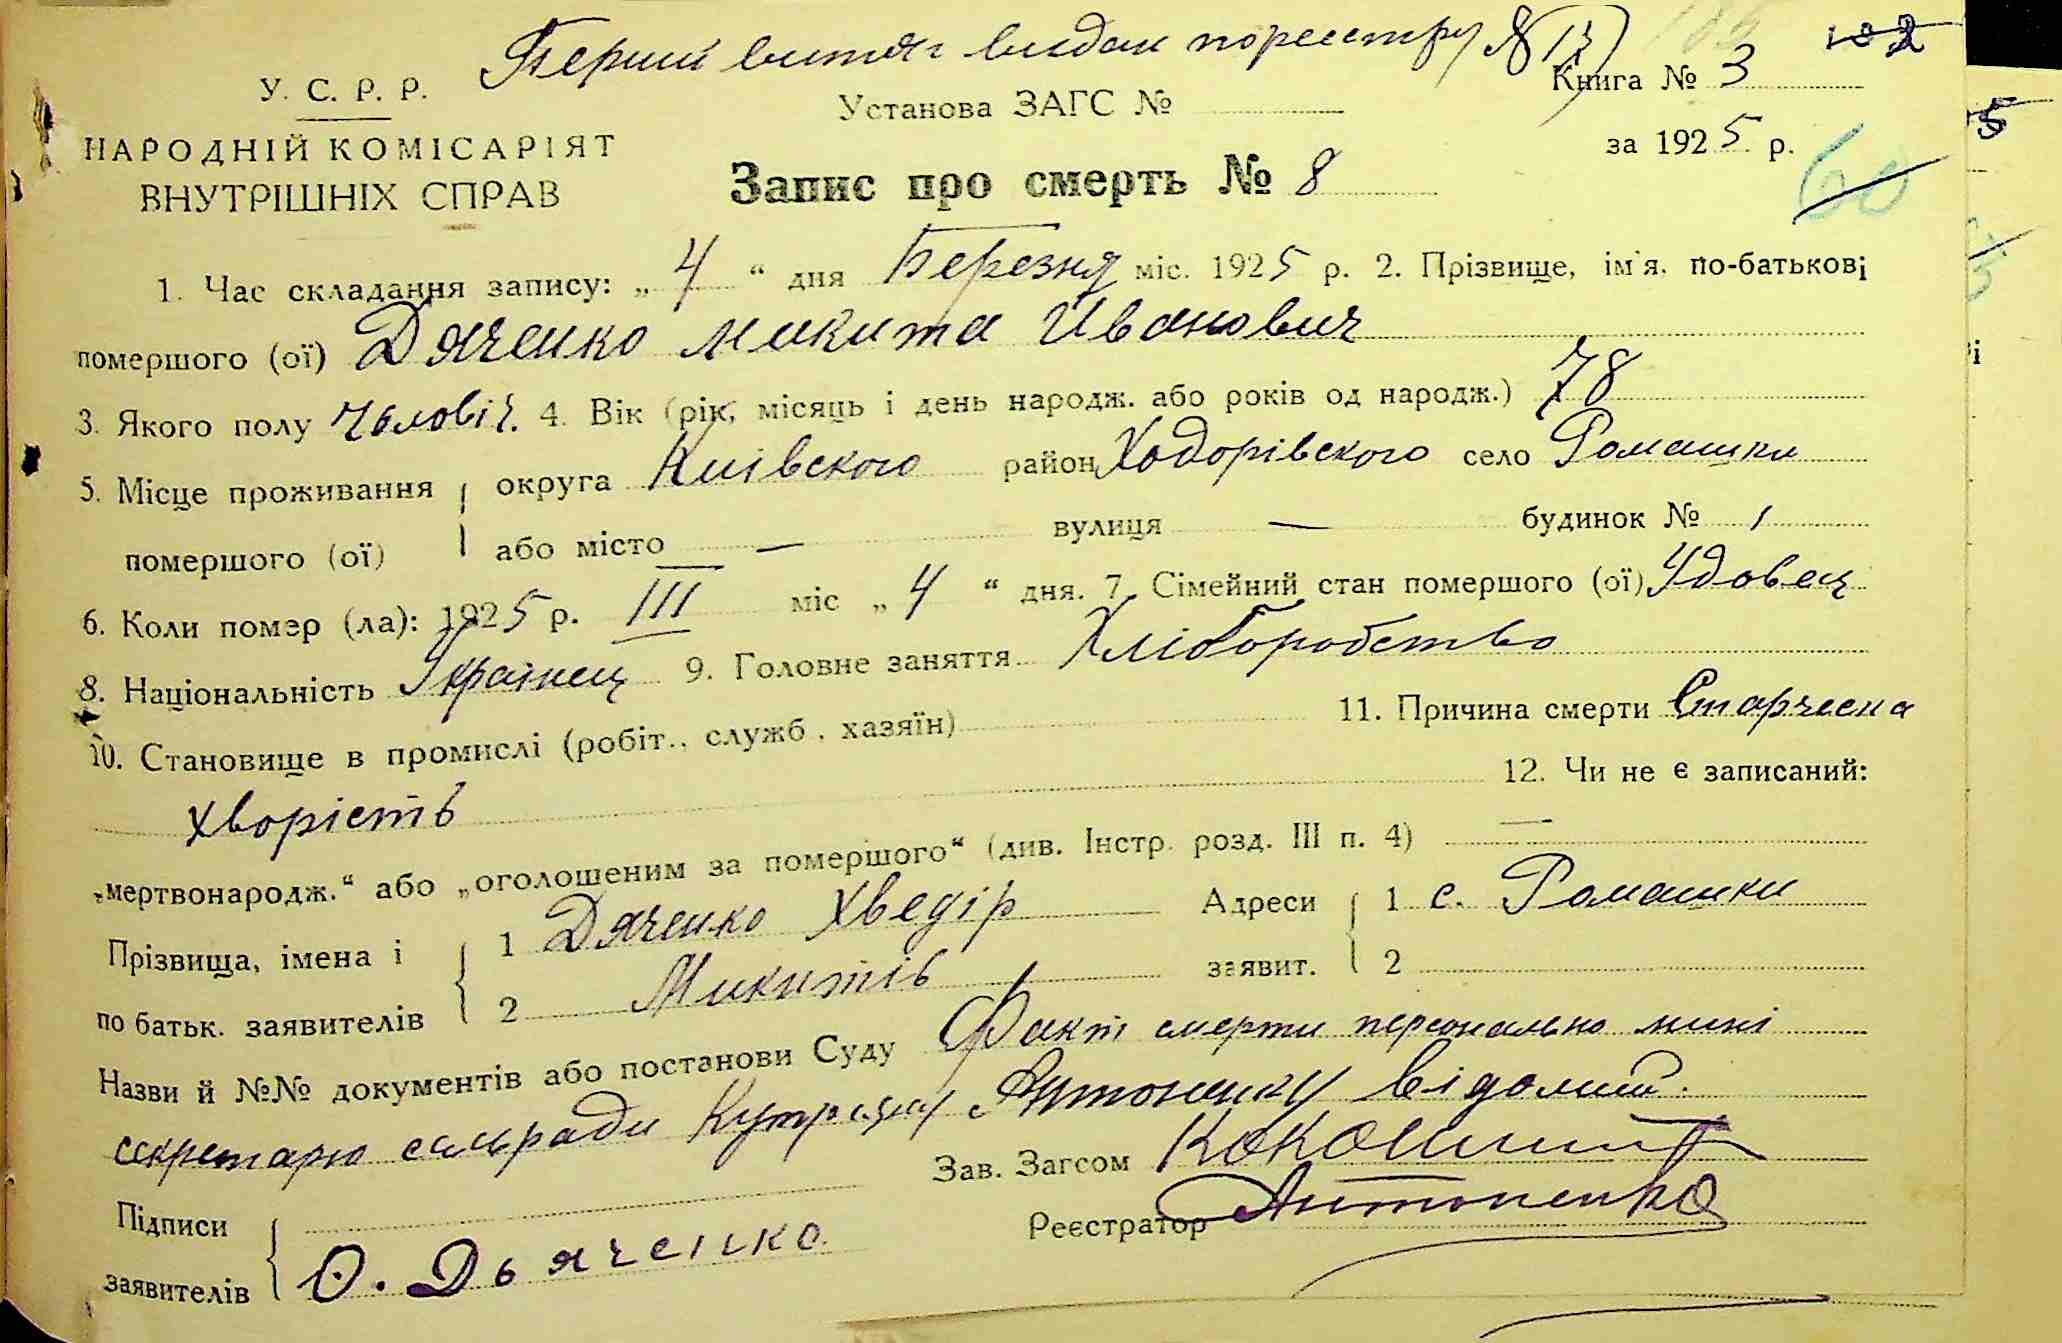 Перший витяг видан по реестру № 13
102
У. С. Р. Р.
Книга № 3
Установа ЗАГС №
НАРОДНІЙ КОМІСАРІЯТ
за 1925 р.
ВНУТРІШНІХ СПРАВ
60
Запис про смерть № 8
1. Час складання запису: „ 4 “ дня Березня міс. 1925 р. 2. Прізвище, ім'я, по-батькові
помершого (ої) Дяченко Микита Иванович
3. Якого полу чоловіч. 4. Вік (рік, місяць і день народж. або років од народж.) 78
5. Місце проживання округа Київского район Ходорівского село Ромашки
помершого (ої) або місто — вулиця — будинок № 1
6. Коли помер (ла): 1925 р. III міс „ 4 “ дня. 7. Сімейний стан помершого (ої) Удовец
8. Національність Українец 9. Головне заняття Хліборобство
10. Становище в промислі (робіт., служб., хазяїн) 11. Причина смерти Старческа
хворість 12. Чи не є записаний:
„мертвонародж.“ або „оголошеним за помершого“ (див. Інстр. розд. III п. 4) —
Прізвища, імена і 1 Дяченко Хведір Адреси 1 с. Ромашки
по батьк. заявителів 2 Микитів заявит. 2
Назви й №№ документів або постанови Суду Факт смерти персонально мині
секретарю сельради Антоненку відомий.
Зав. Загсом
Підписи
Реєстратор Антоненко
заявителів Ѳ. Дьяченко
5